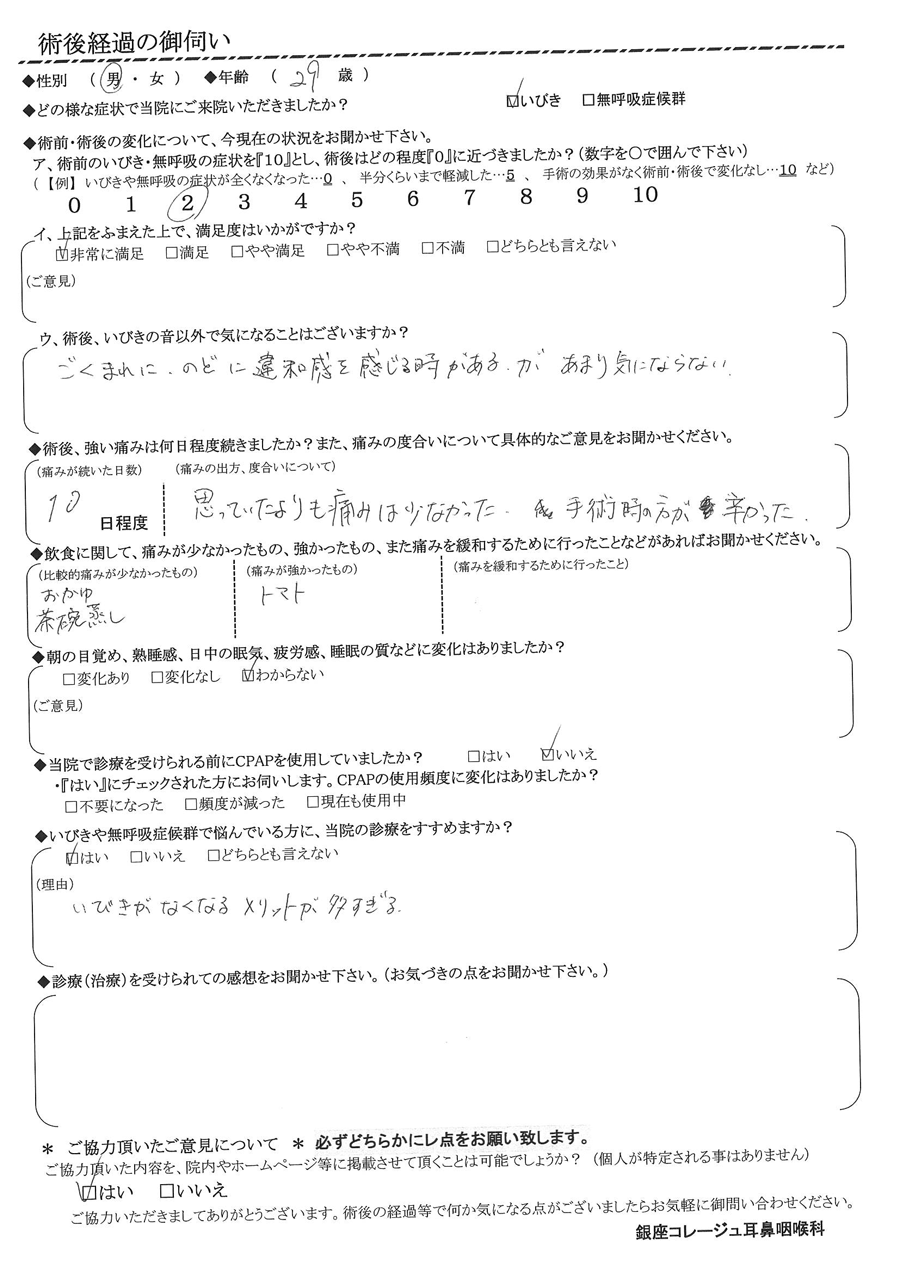 術後経過の御伺い
◆性別 （ 男 ・ 女 ） ◆年齢 （ 29 歳 ）
◆どの様な症状で当院にご来院いただきましたか？ ☑いびき □無呼吸症候群
◆術前・術後の変化について、今現在の状況をお聞かせ下さい。
ア、術前のいびき・無呼吸の症状を『10』とし、術後はどの程度『0』に近づきましたか？（数字を〇で囲んで下さい）
（【例】 いびきや無呼吸の症状が全くなくなった…0 、 半分くらいまで軽減した…5 、 手術の効果がなく術前・術後で変化なし…10 など）
0 1 2 3 4 5 6 7 8 9 10
イ、上記をふまえた上で、満足度はいかがですか？
☑非常に満足 □満足 □やや満足 □やや不満 □不満 □どちらとも言えない
（ご意見）
ウ、術後、いびきの音以外で気になることはございますか？
ごくまれに、のどに違和感を感じる時がある、が あまり気にならない。
◆術後、強い痛みは何日程度続きましたか？また、痛みの度合いについて具体的なご意見をお聞かせください。
（痛みが続いた日数） （痛みの出方、度合いについて）
10 日程度 思っていたよりも痛みは少なかった、 手術時の方が 辛かった。
◆飲食に関して、痛みが少なかったもの、強かったもの、また痛みを緩和するために行ったことなどがあればお聞かせください。
（比較的痛みが少なかったもの） （痛みが強かったもの） （痛みを緩和するために行ったこと）
おかゆ トマト
茶碗蒸し
◆朝の目覚め、熟睡感、日中の眠気、疲労感、睡眠の質などに変化はありましたか？
□変化あり □変化なし ☑わからない
（ご意見）
◆当院で診療を受けられる前にCPAPを使用していましたか？ □はい ☑いいえ
・『はい』にチェックされた方にお伺いします。CPAPの使用頻度に変化はありましたか？
□不要になった □頻度が減った □現在も使用中
◆いびきや無呼吸症候群で悩んでいる方に、当院の診療をすすめますか？
☑はい □いいえ □どちらとも言えない
（理由）
いびきが なくなる メリットが 多すぎる。
◆診療（治療）を受けられての感想をお聞かせ下さい。（お気づきの点をお聞かせ下さい。）
＊ ご協力頂いたご意見について ＊ 必ずどちらかにレ点をお願い致します。
ご協力頂いた内容を、院内やホームページ等に掲載させて頂くことは可能でしょうか？ （個人が特定される事はありません）
☑はい □いいえ
ご協力いただきましてありがとうございます。術後の経過等で何か気になる点がございましたらお気軽に御問い合わせください。
銀座コレージュ耳鼻咽喉科